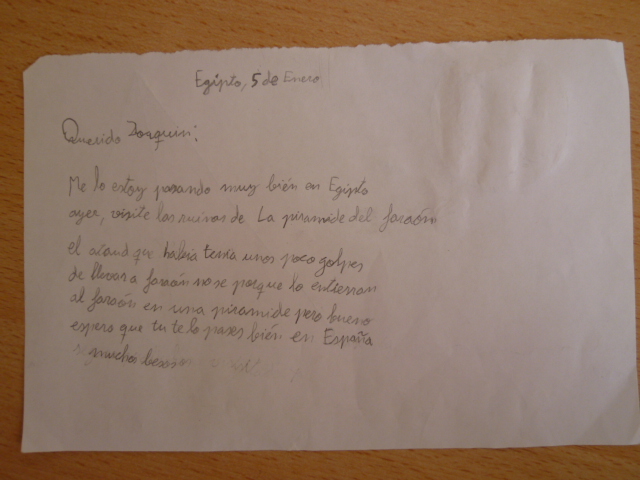 Egipto, 5 de Enero
Querido Joaquin:
Me lo estoy pasando muy bién en Egipto
ayer, visite las ruinas de La piramide del faraón
el ataud que habia tenia unos poco golpes
de llevar a faraón no se porque lo entierran
al faraón en una piramide pero bueno
espero que tu te lo pases bién en España
muchos besos